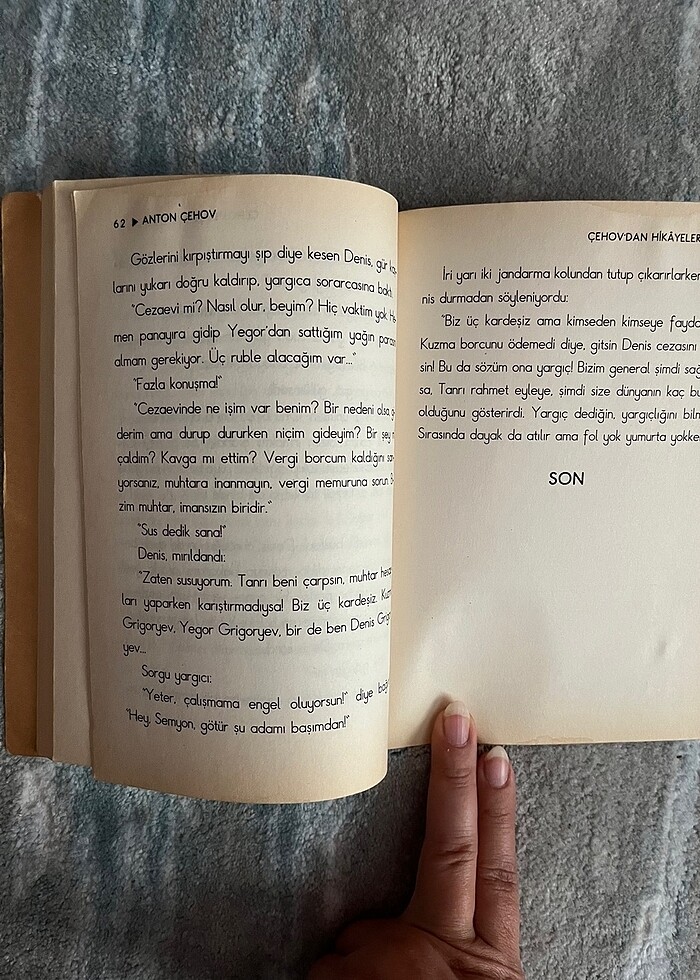 62 ▶ ANTON ÇEHOV
Gözlerini kırpıştırmayı şıp diye kesen Denis, gür
larını yukarı doğru kaldırıp, yargıca sorarcasına baktı.
"Cezaevi mi? Nasıl olur, beyim? Hiç vaktim yok
men panayıra gidip Yegor'dan sattığım yağın
almam gerekiyor. Üç ruble alacağım var..."
"Fazla konuşma!"
"Cezaevinde ne işim var benim? Bir nedeni olsa,
derim ama durup dururken niçim gideyim? Bir şey
çaldım? Kavga mı ettim? Vergi borcum kaldığını
yorsanız, muhtara inanmayın, vergi memuruna sorun.
zim muhtar, imansızın biridir."
"Sus dedik sana!"
Denis, mırıldandı:
"Zaten susuyorum. Tanrı beni çarpsın, muhtar
ları yaparken karıştırmadıysa! Biz üç kardeşiz.
Grigoryev, Yegor Grigoryev, bir de ben Denis
yev...
Sorgu yargıcı:
"Yeter, çalışmama engel oluyorsun!" diye
"Hey, Semyon, götür şu adamı başımdan!"
ÇEHOV'DAN HİKÂYELER
İri yarı iki jandarma kolundan tutup çıkarırlarken
nis durmadan söyleniyordu:
"Biz üç kardeşiz ama kimseden kimseye
Kuzma borcunu ödemedi diye, gitsin Denis cezasını
sin! Bu da sözüm ona yargıç! Bizim general şimdi
sa, Tanrı rahmet eyleye, şimdi size dünyanın kaç
olduğunu gösterirdi. Yargıç dediğin, yargıçlığını
Sırasında dayak da atılır ama fol yok yumurta
SON